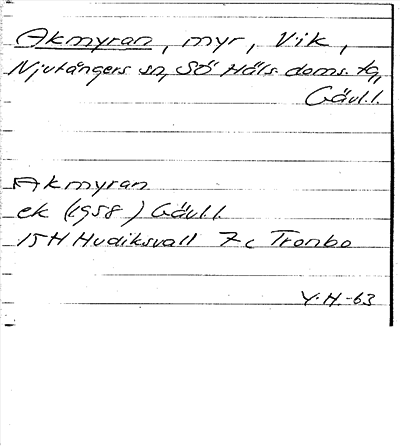 Akmyran, myr, Vik,
Njutångers sn, Sö Häls. doms. tg,
Gävl.l.
Akmyran
ek (1958) Gävl.l.
15H Hudiksvall 7c Tronbo
Y.H.-63